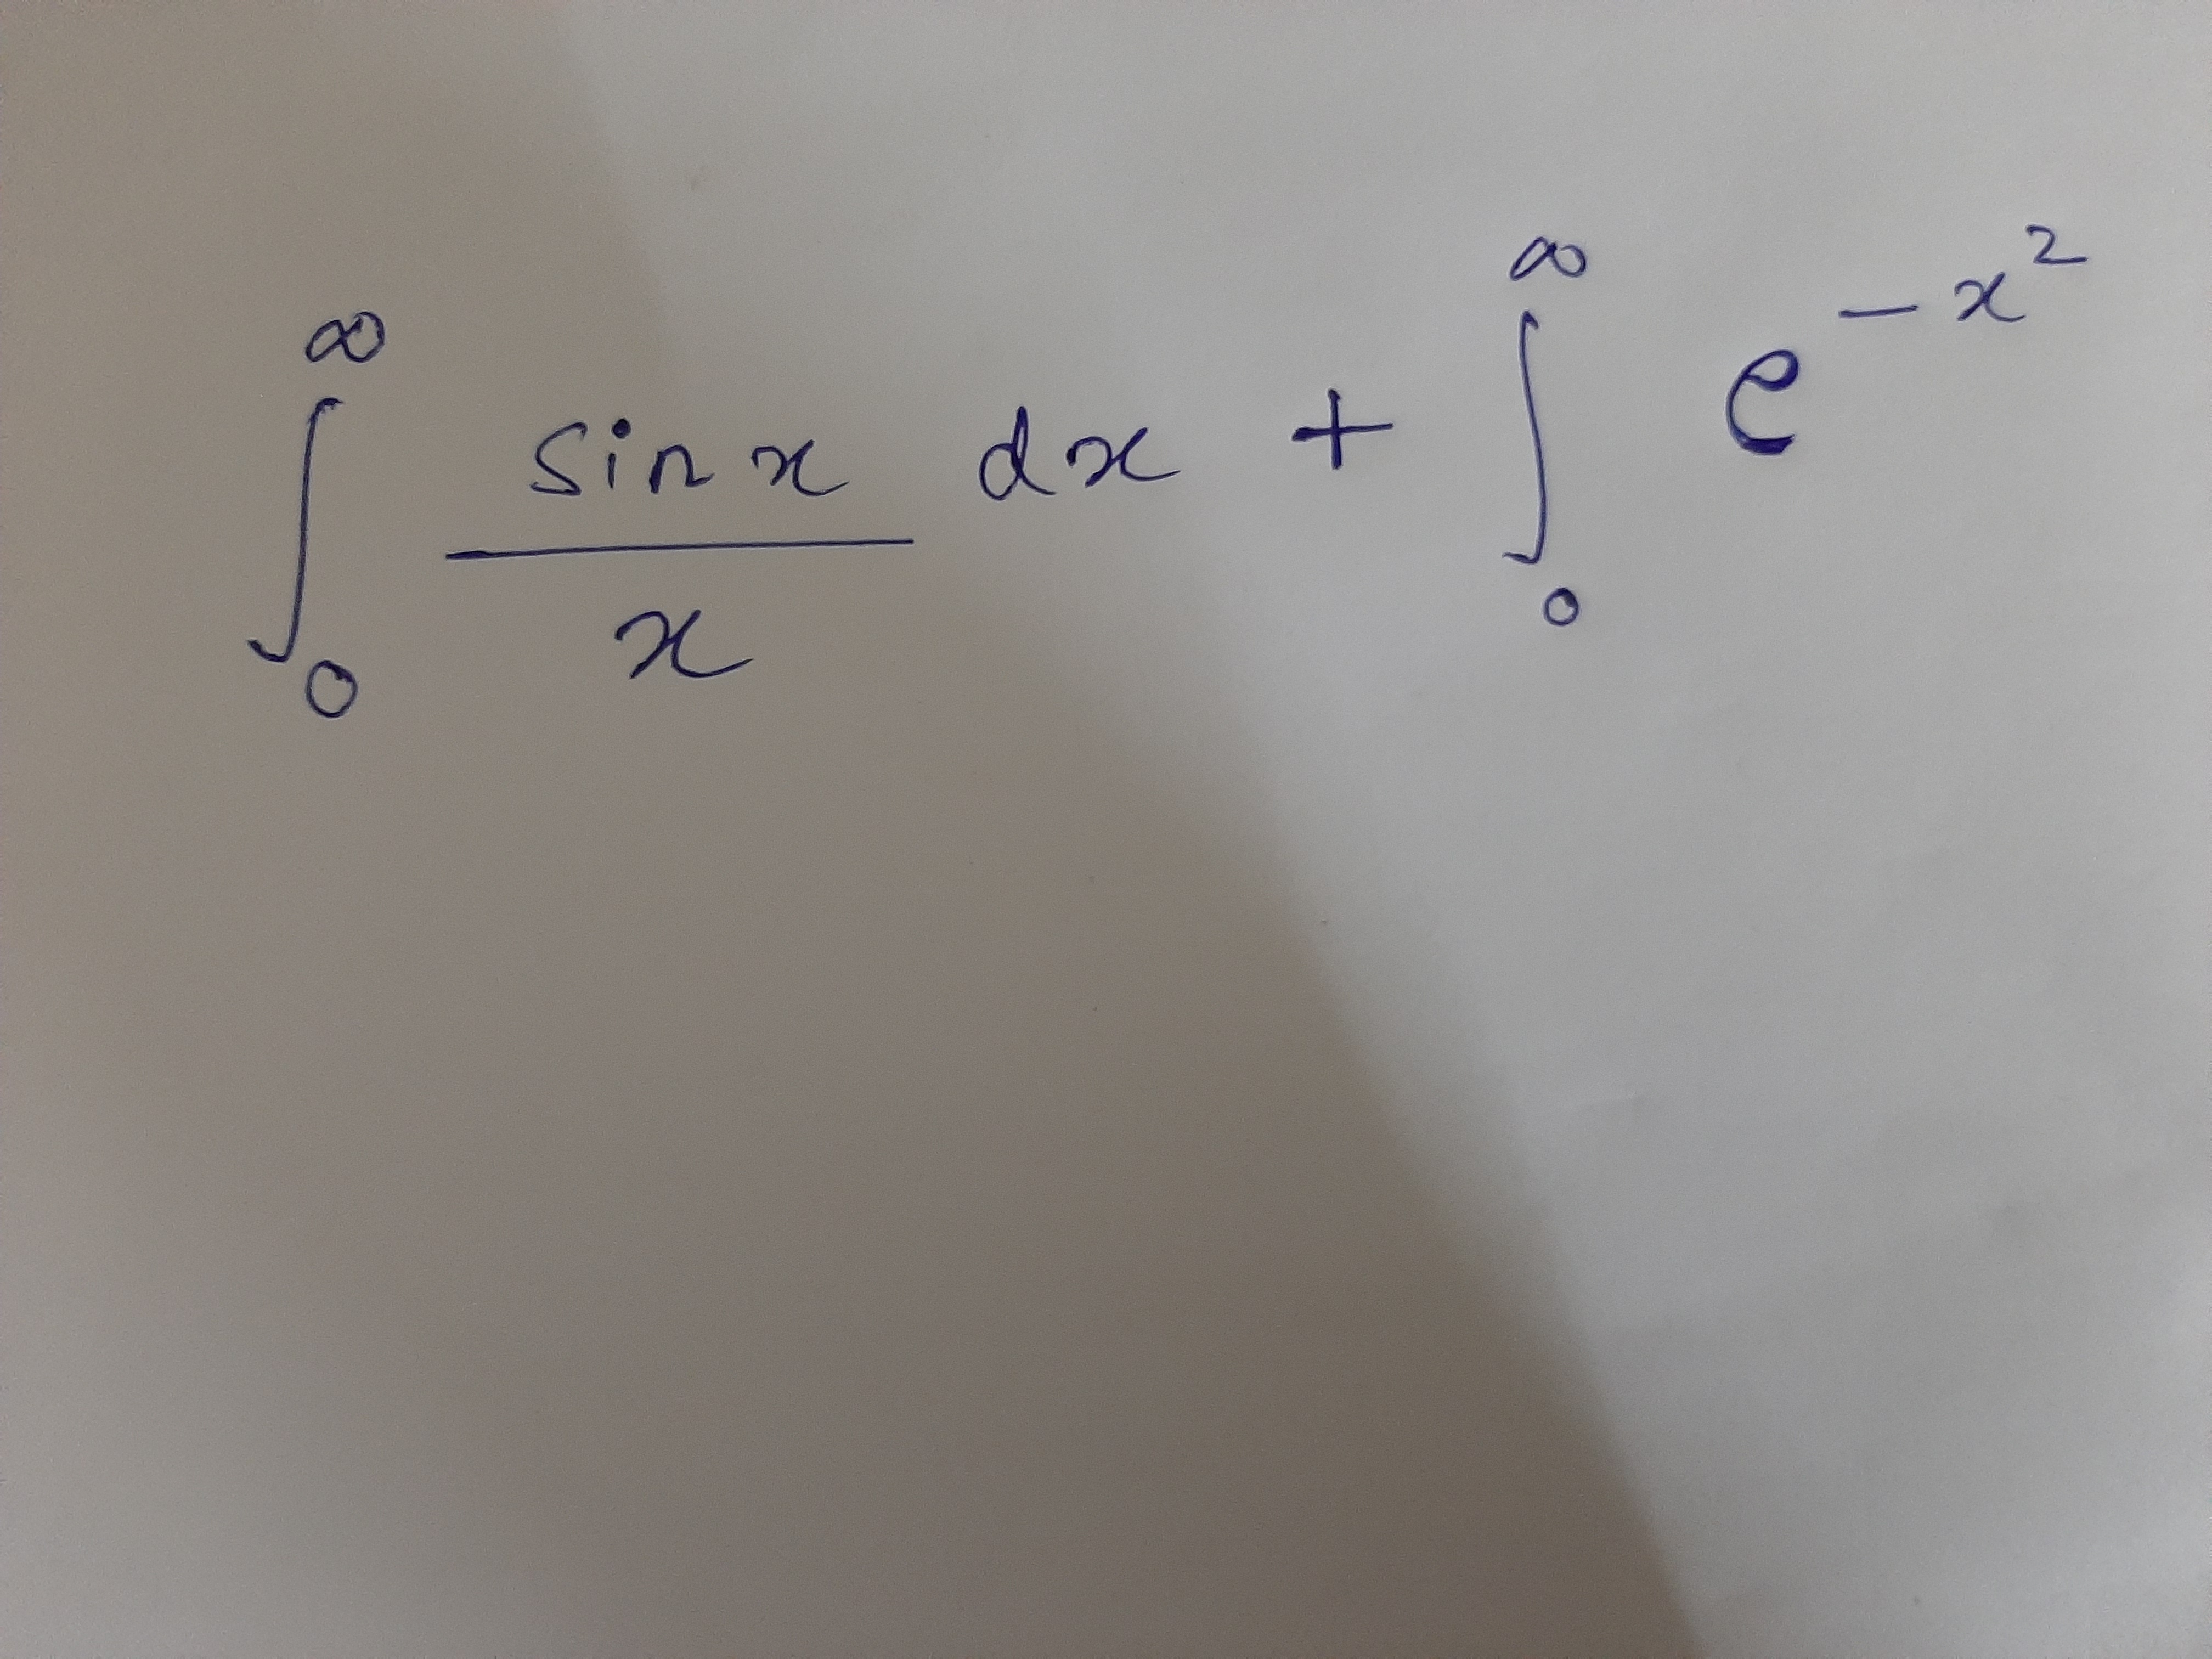 ∫₀^∞ sin x / x dx + ∫₀^∞ e^{-x²}